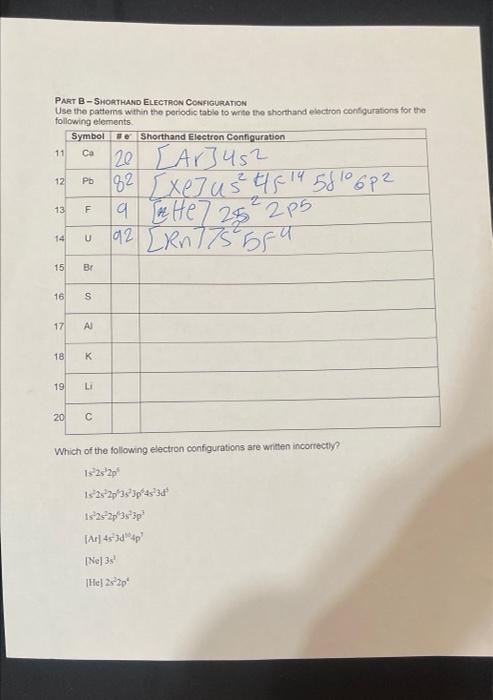 PART B – SHORTHAND ELECTRON CONFIGURATION
Use the patterns within the periodic table to write the shorthand electron configurations for the
following elements.
Symbol # e⁻ Shorthand Electron Configuration
11 Ca 20 [Ar]4s2
12 Pb 82 [Xe]4s² 4f¹⁴ 5d¹⁰ 6p2
13 F 9 [He] 2s² 2p5
14 U 92 [Rn]7s² 5f4
15 Br
16 S
17 Al
18 K
19 Li
20 C
Which of the following electron configurations are written incorrectly?
[Ar] 4s²3d¹⁰4p⁷
[He] 2s²2p⁴